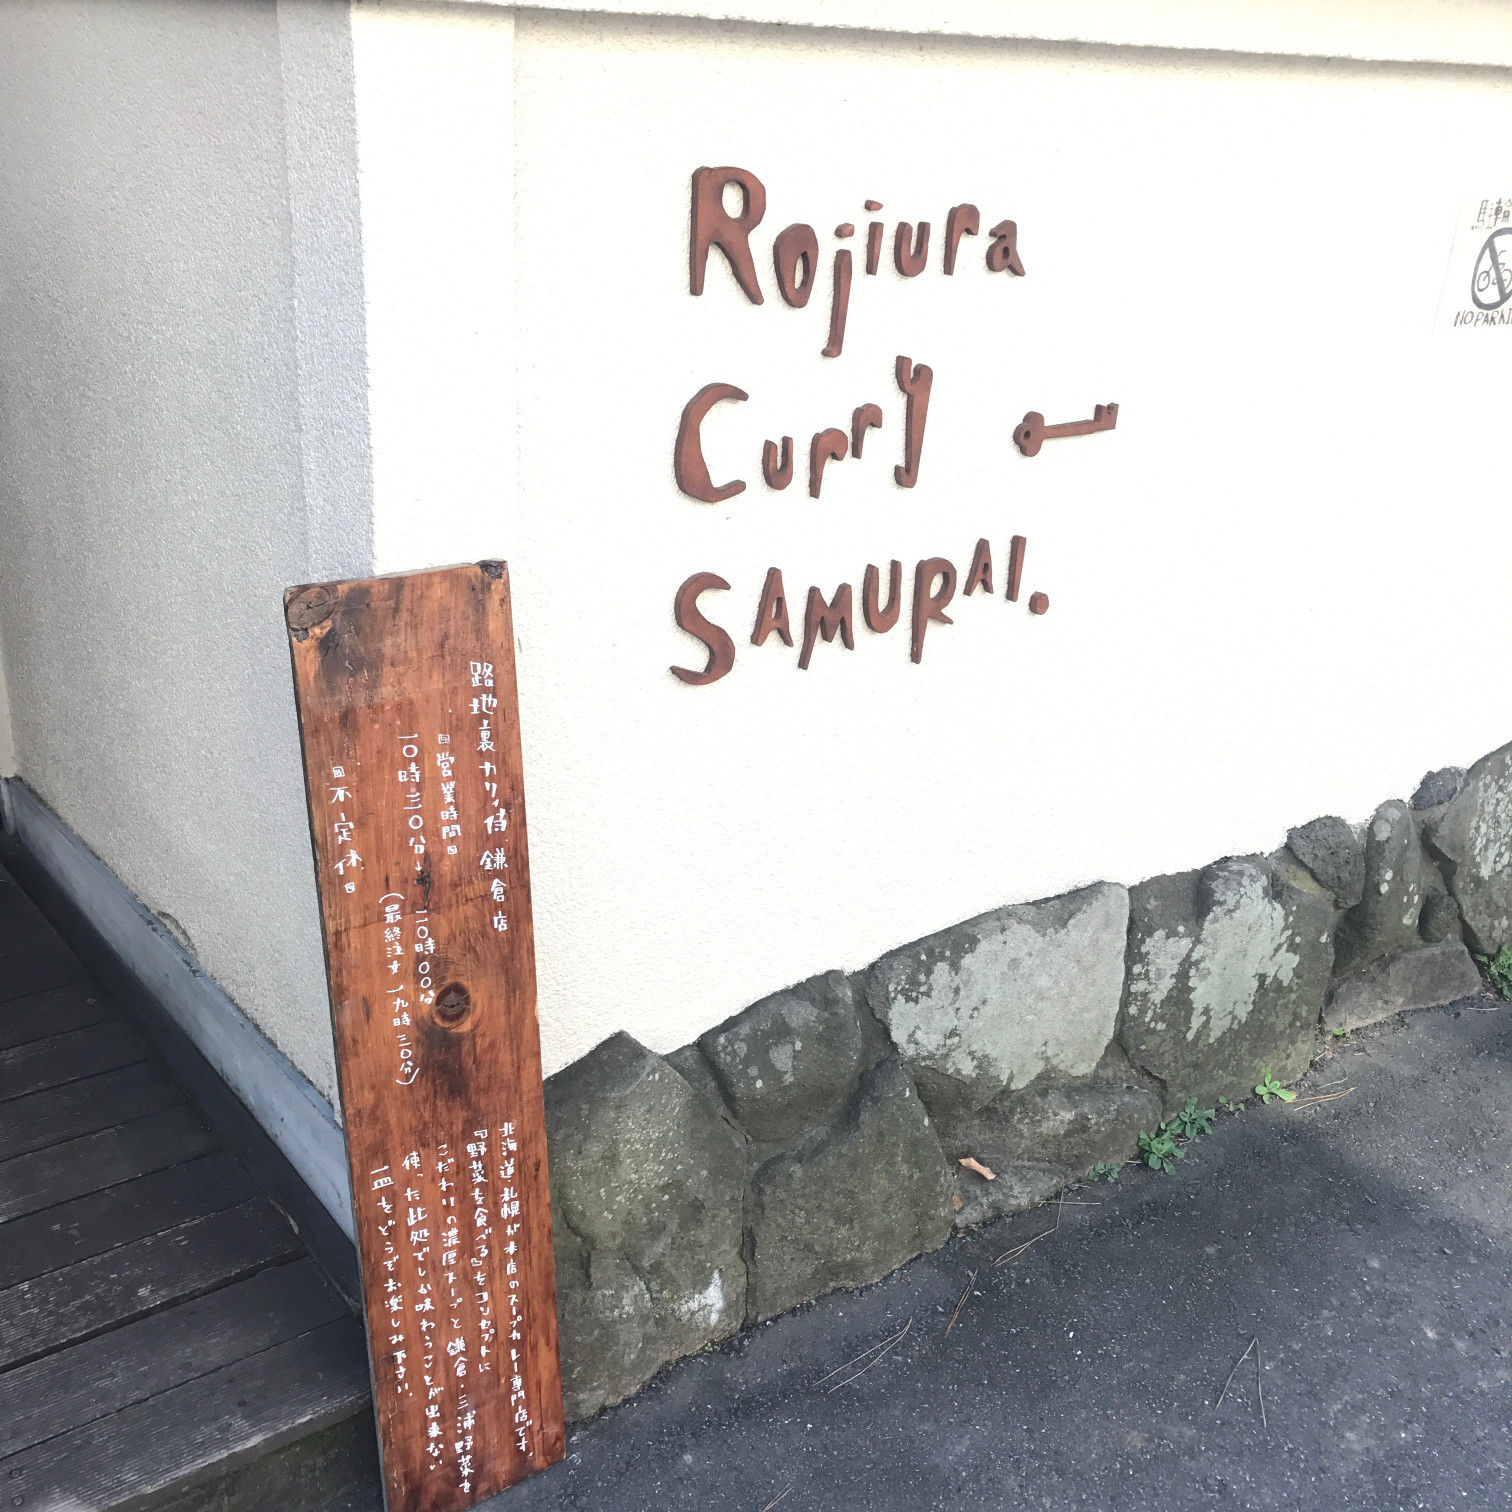 Rojiura
Curry
SAMURAI.
駐輪
NO PARKI
路地裏カリィ侍.鎌倉店
営業時間
一〇時三〇分→二〇時〇〇分
(最終注文一九時三〇分)
不定休
北海道札幌が本店のスープカレー専門店です。
『野菜を食べる』をコンセプトに
こだわりの濃厚スープと鎌倉・三浦野菜を
使った此処でしか味わうことが出来ない
一皿をどうぞお楽しみ下さい。